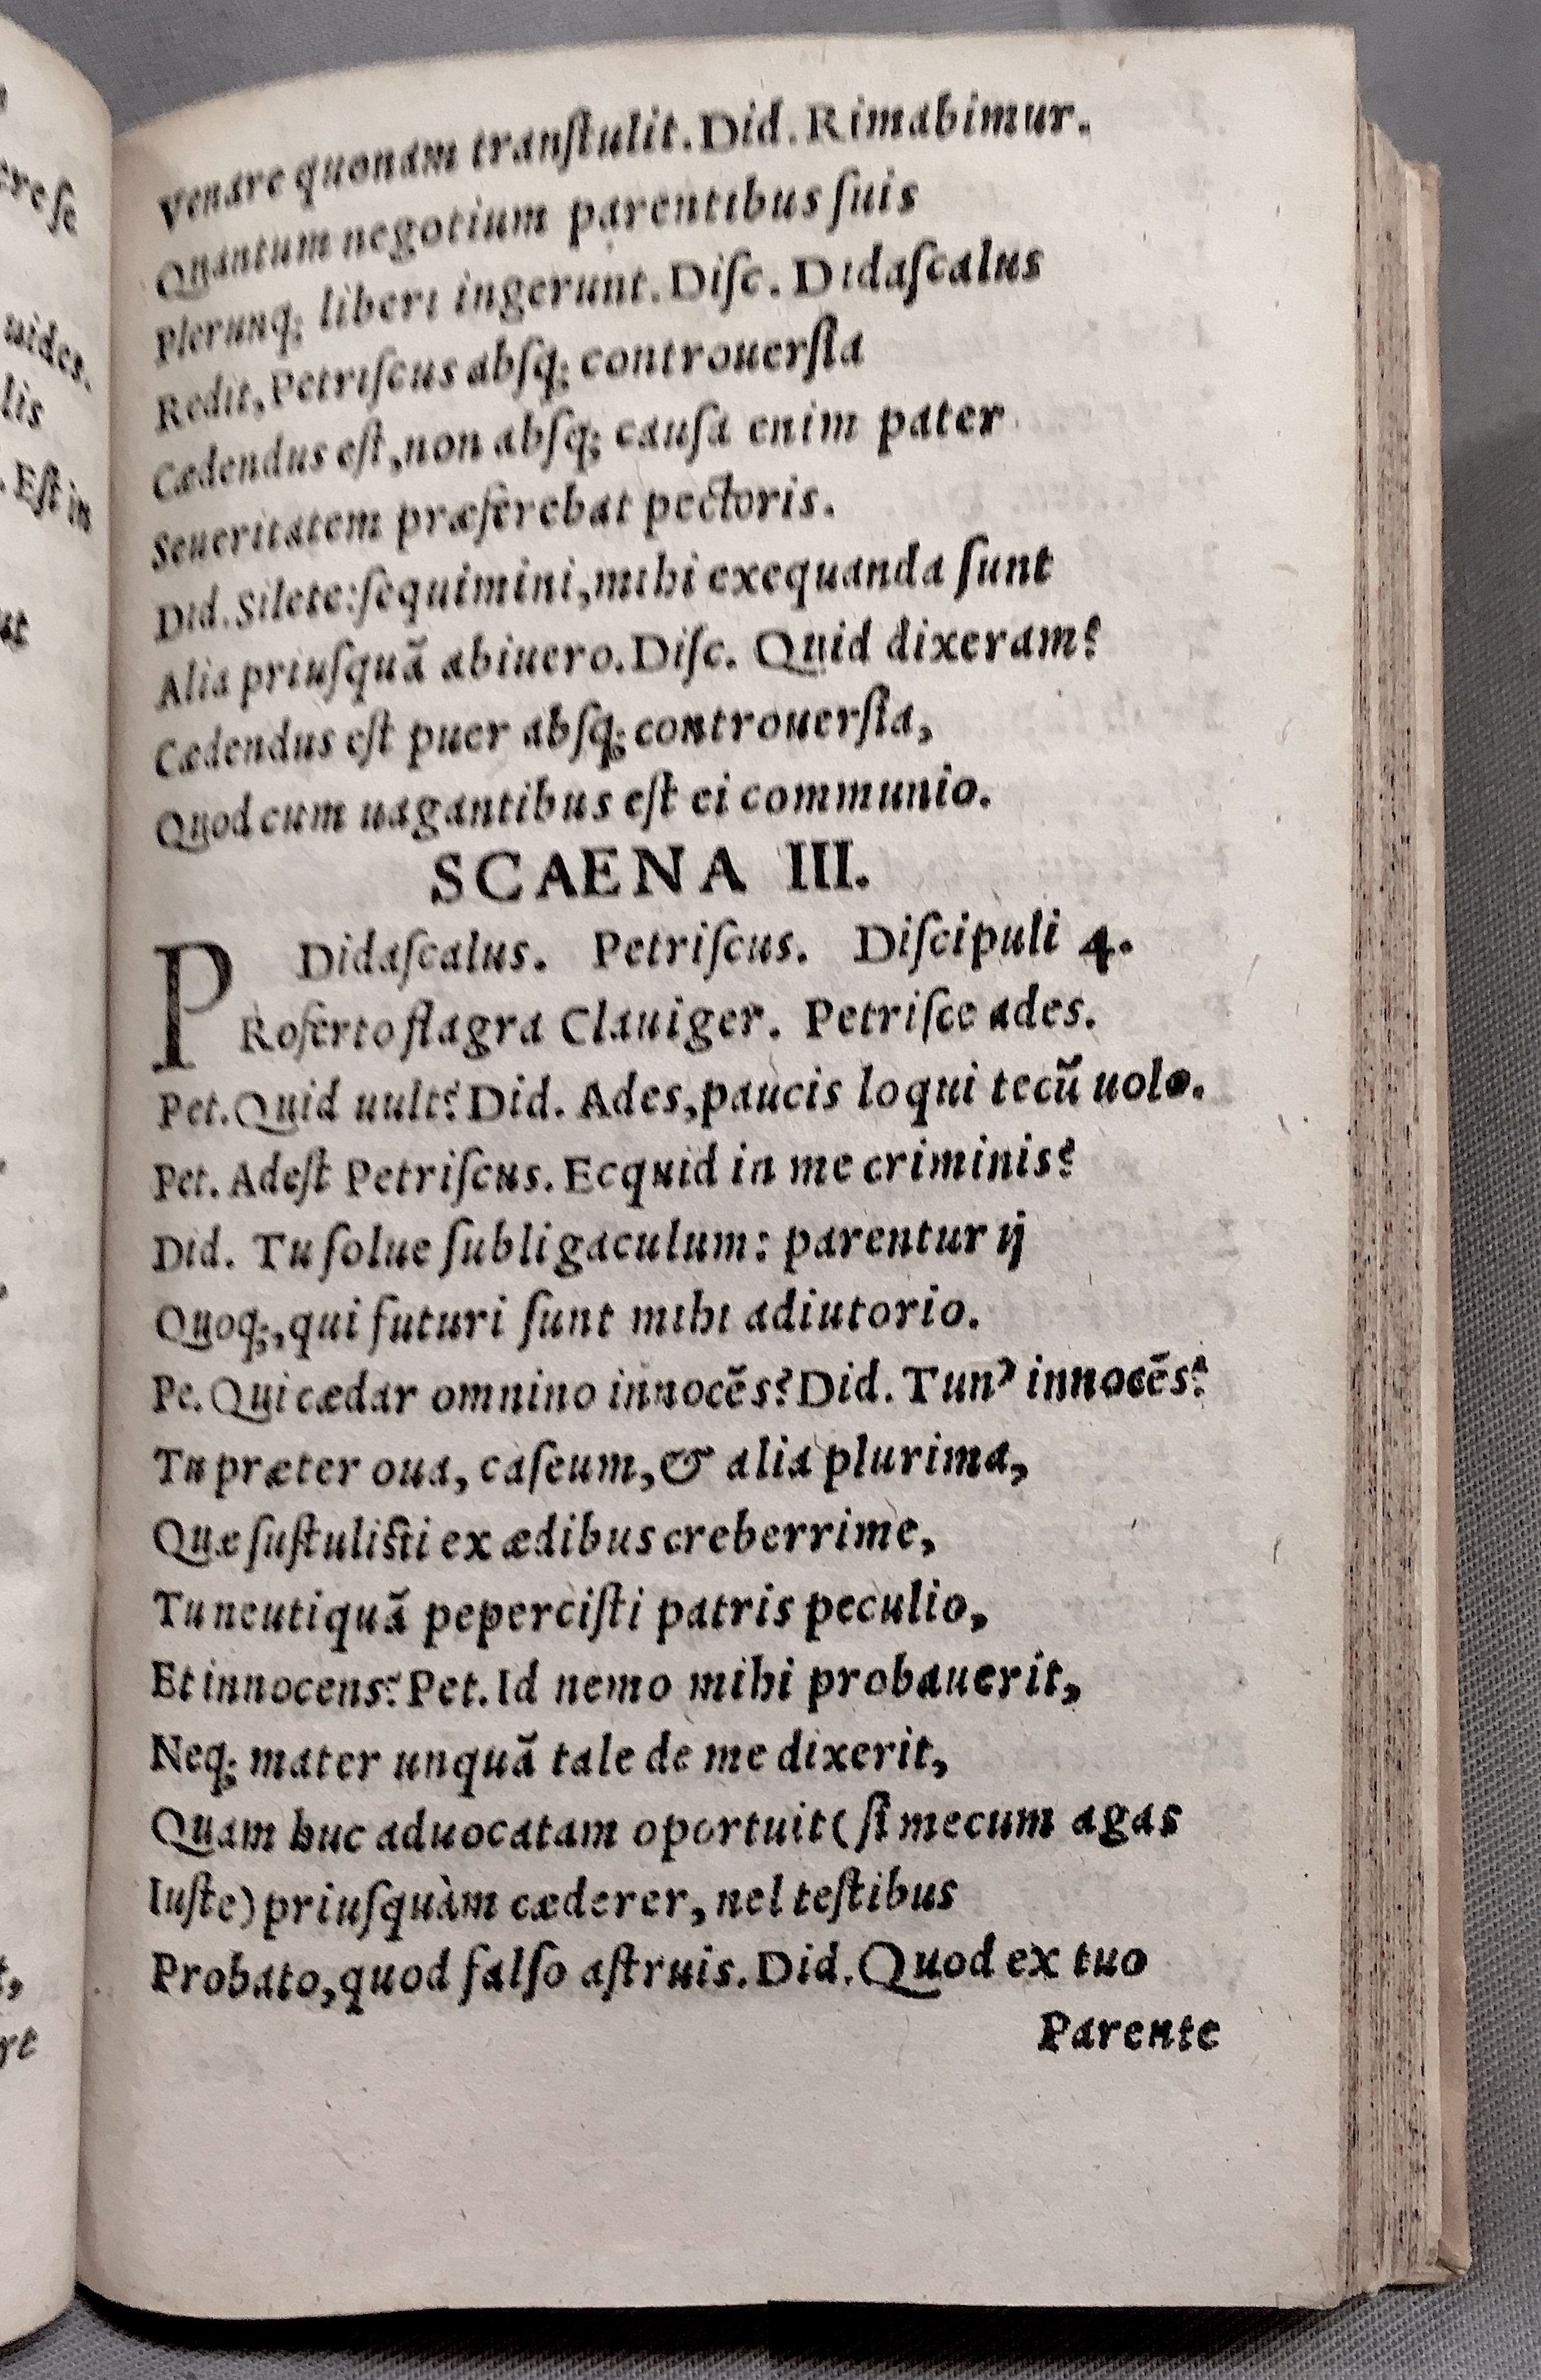 Venare quonam tranſtulit. Did. Rimabimur.
Quantum negotium parentibus ſuis
Plerunq; liberi ingerunt. Diſc. Didaſcalus
Redit, Petriſcus abſq; controuerſia
Cædendus eſt, non abſq; cauſa enim pater
Seueritatem præferebat pectoris.
Did. Silete: ſequimini, mihi exequanda ſunt
Alia priuſquã abiuero. Diſc. Quid dixeram?
Cædendus eſt puer abſq; controuerſia,
Quod cum uagantibus eſt ei communio.
SCAENA III.
Didaſcalus. Petriſcus. Diſcipuli 4.
PRoferto flagra Clauiger. Petriſce ades.
Pet. Quid uult? Did. Ades, paucis loqui tecũ uolo.
Pet. Adeſt Petriſcus. Ecquid in me criminis?
Did. Tu ſolue ſubligaculum: parentur ij
Quoq;, qui futuri ſunt mihi adiutorio.
Pe. Qui cædar omnino innocẽs? Did. Tun' innocẽs?
Tu præter oua, caſeum, & alia plurima,
Quæ ſuſtuliſti ex ædibus creberrime,
Tu neutiquã peperciſti patris peculio,
Et innocens? Pet. Id nemo mihi probauerit,
Neq; mater unquã tale de me dixerit,
Quam huc aduocatam oportuit (ſi mecum agas
Iuſte) priuſquàm cæderer, uel teſtibus
Probato, quod falſo aſtruis. Did. Quod ex tuo
Parente